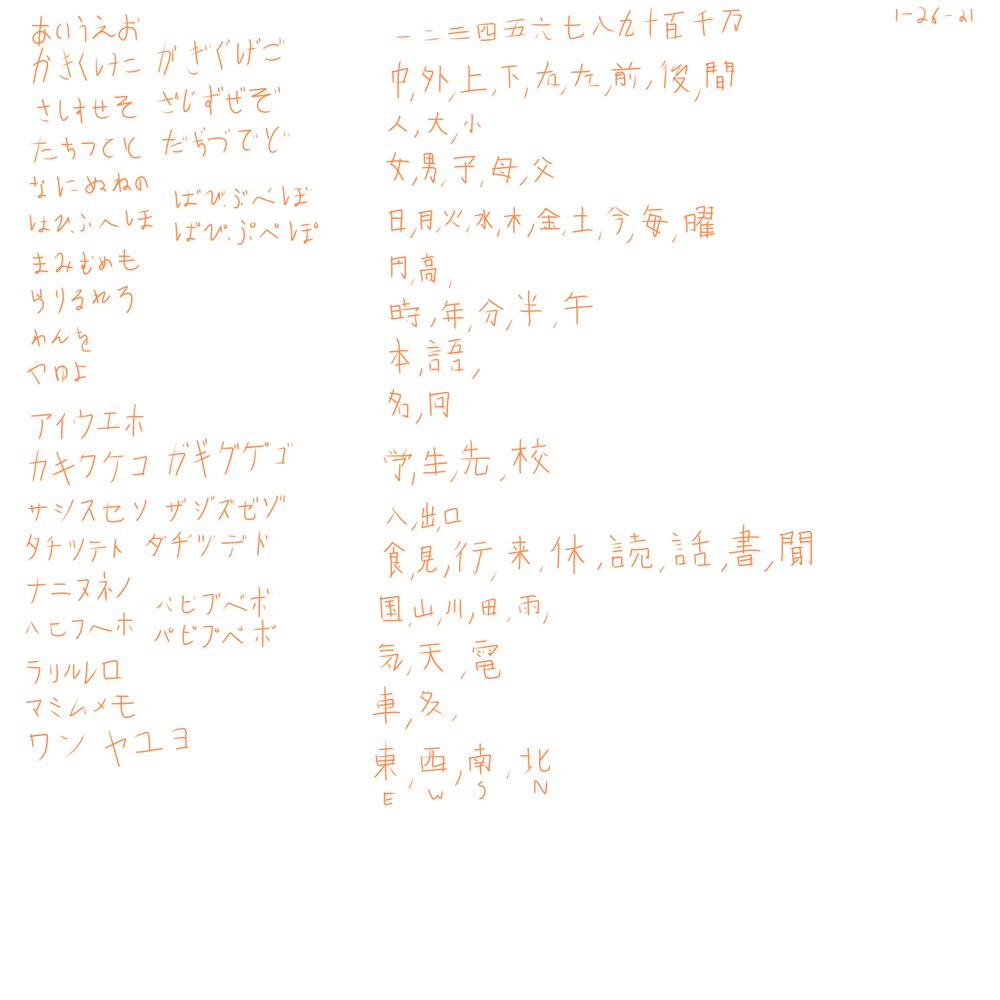 1-26-21
あいうえお
かきくけこ がぎぐげご
さしすせそ ざじずぜぞ
たちつてと だぢづでど
なにぬねの
はひふへほ ばびぶべぼ
ぱぴぷぺぽ
まみむめも
らりるれろ
わんを
やゆよ
アイウエホ
カキクケコ ガギグゲゴ
サシスセソ ザジズゼゾ
タチツテト ダヂヅデド
ナニヌネノ
ハヒフヘホ バビブベボ
パピプペポ
ラリルレロ
マミムメモ
ワン ヤユヨ
一二三四五六七八九十百千万
中,外,上,下,右,左,前,後,間
人,大,小
女,男,子,母,父
日,月,火,水,木,金,土,今,毎,曜
円,高,
時,年,分,半,午
本,語,
名,同
学,生,先,校
入,出,口
食,見,行,来,休,読,話,書,聞
国,山,川,田,雨,
気,天,電
車,友,
東,西,南,北
E W S N